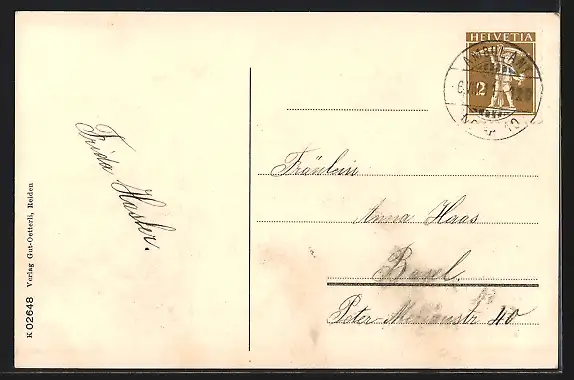 HELVETIA
2
AMBULANT
Fräulein
Anna Haas
Basel
Peter Merianstr 40
Frida Hasler.
K 02648 Verlag Gut-Oetterli, Reiden